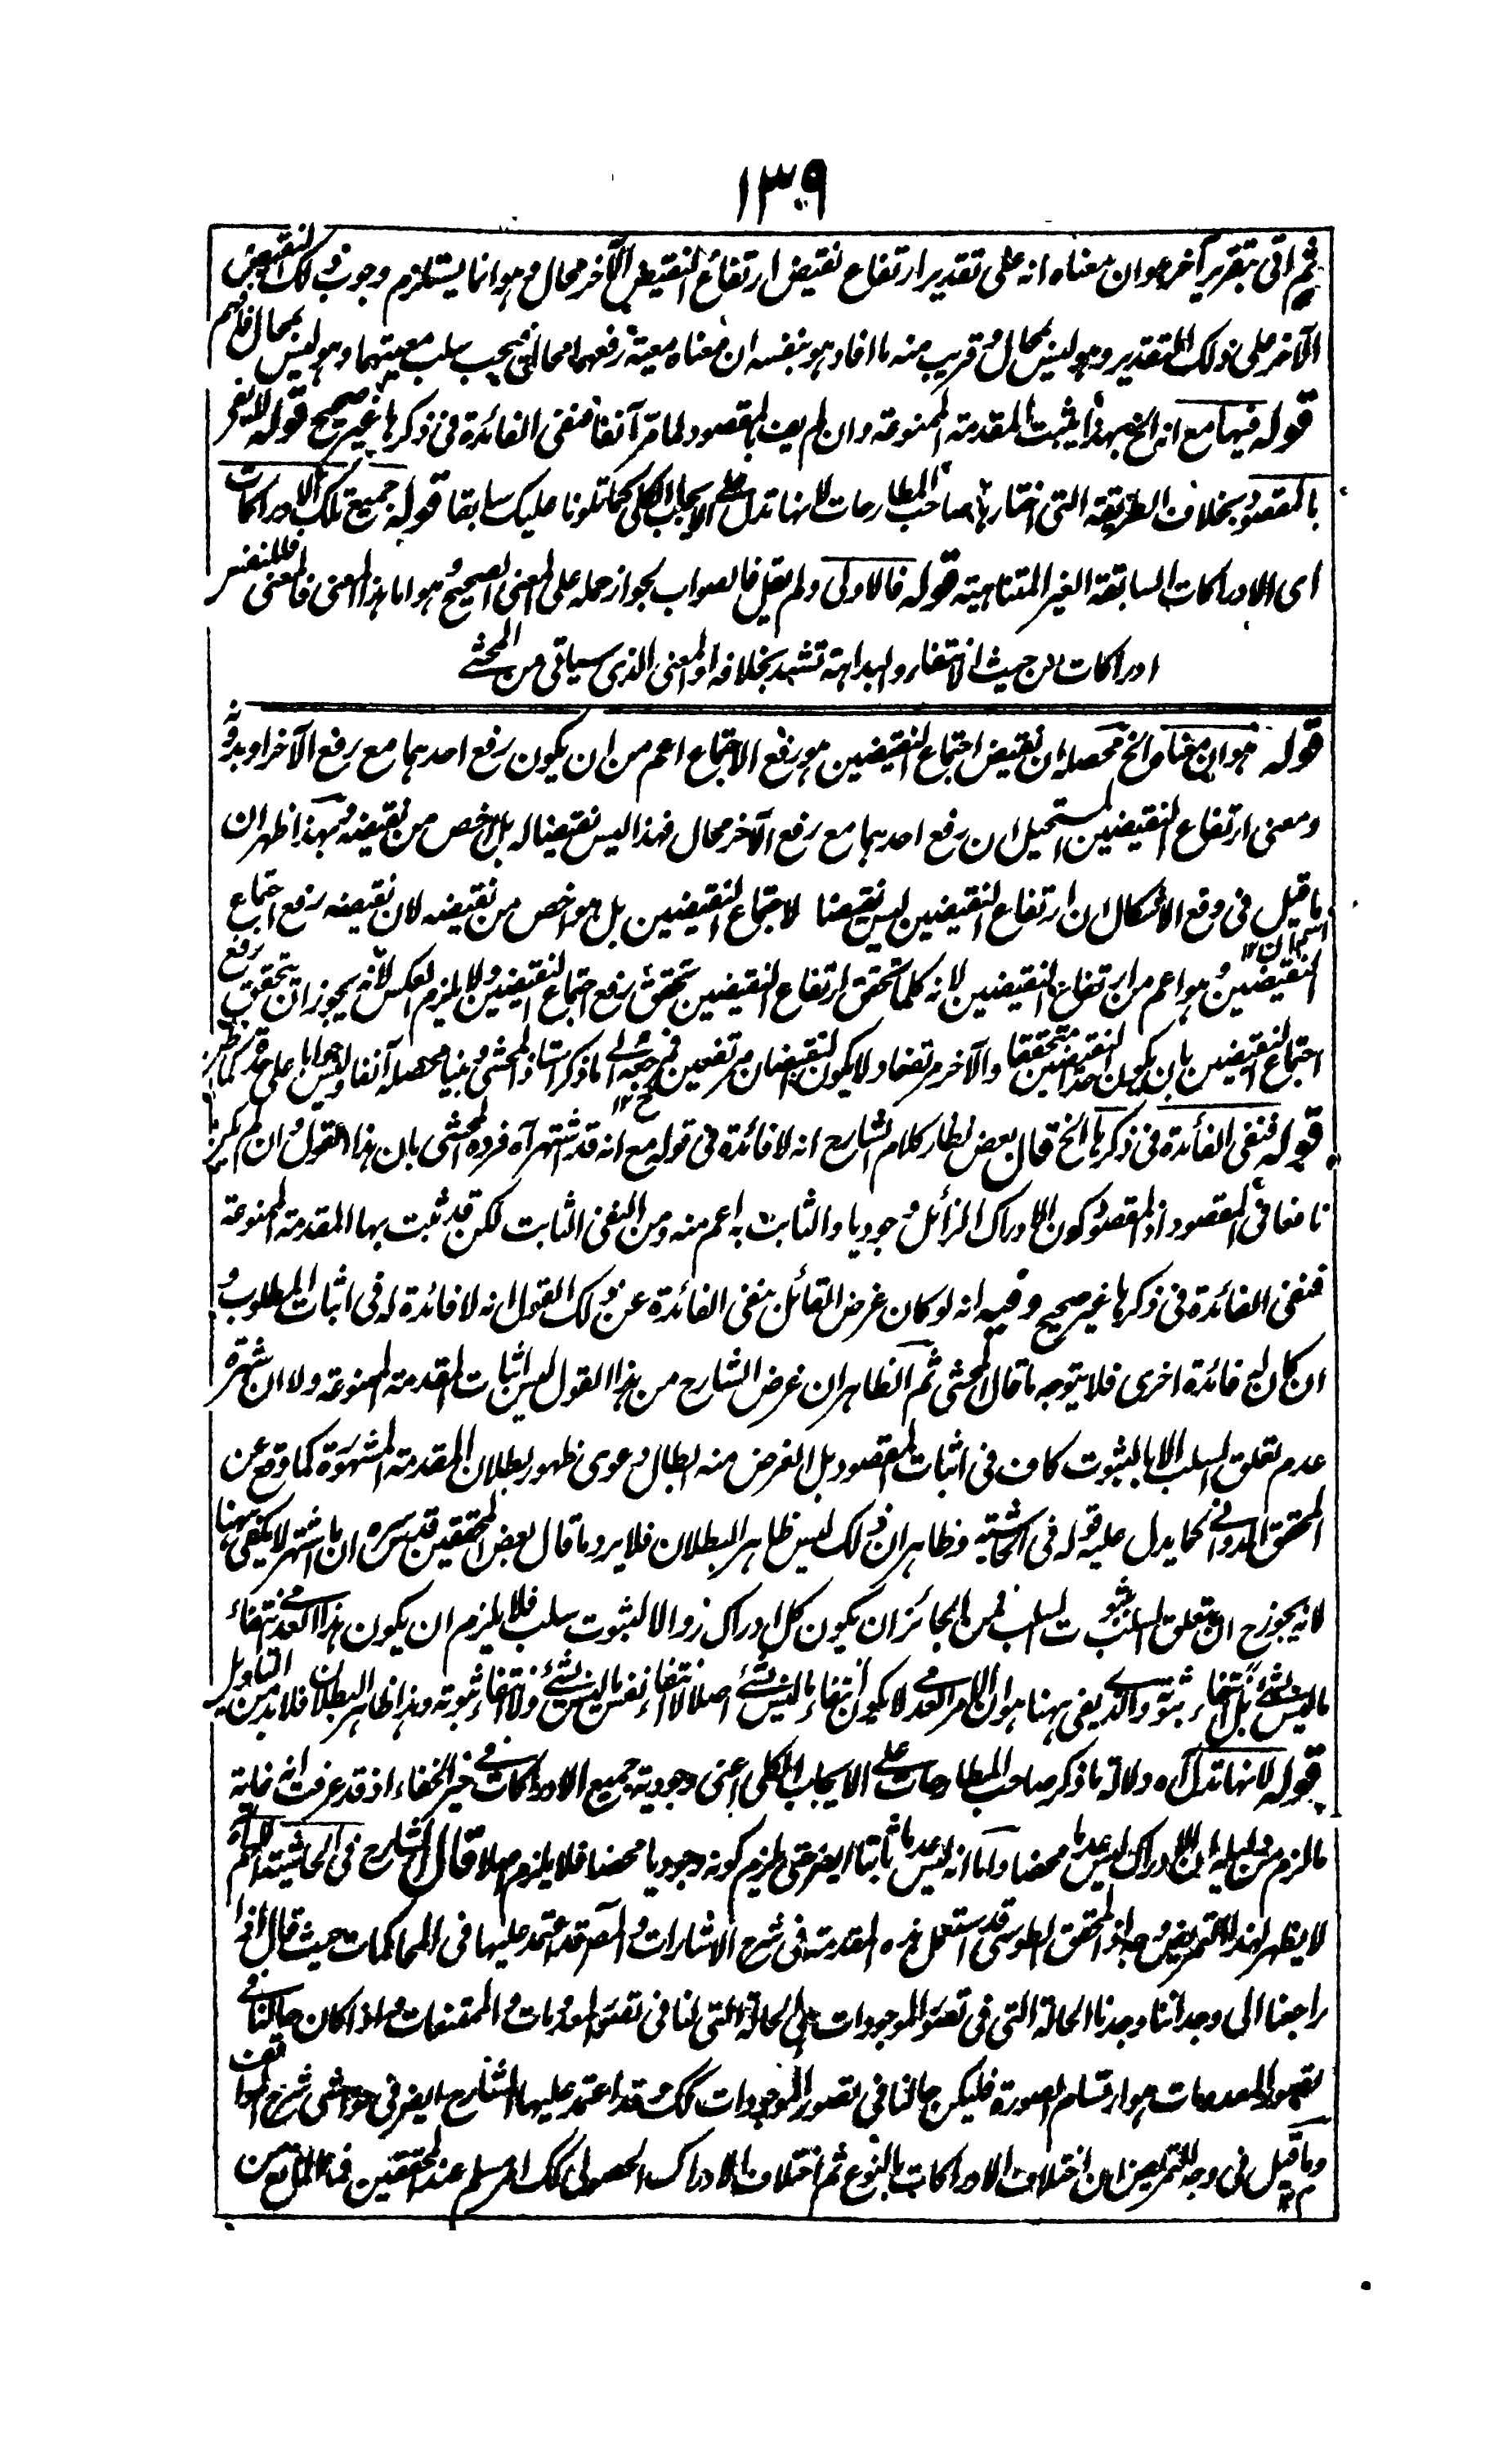 ١٣٩
ثم اتى بتقرير آخر هو ان معناه انه على تقدير ارتفاع نقيض ارتفاع النقيض الآخر محال وهو انما يستلزم وجوب ذلك النقيض
الآخر على ذلك التقدير وهو ليس بمحال وقريب منه ما افاد هو بنفسه ان معناه معية رفعهما محال فيجب سلب معيتهما وهو ليس بمحال فافهم
قوله فيها مع انه الخ بهذا يثبت المقدمة الممنوعة وان لم يف بالمقصود لما مر آنفا فنفى الفائدة فى ذكرها غير صحيح قوله لا يفى
بالمقصود بخلاف الطريقة التى اختارها صاحب المطارحات لانها تدل على الايجاب الكلى كما تلونا عليك سابقا قوله جميع تلك الادراكات
اى الادراكات السابقة الغير المتناهية قوله فالاولى ولم يقل فالصواب لجواز حمله على المعنى الصحيح وهو اما هذا المعنى فالمعنى فللنفس
ادراكات من حيث الانتفاء والبداهة تشهد بخلافه او المعنى الذى سياتى من المحشى
قوله هو ان معناه الخ محصله ان نقيض اجتماع النقيضين هو رفع الاجتماع اعم من ان يكون رفع احدهما مع رفع الآخر او بدونه
ومعنى ارتفاع النقيضين المستحيل ان رفع احدهما مع رفع الآخر محال فهذا ليس نقيضا له بل اخص من نقيضه وبهذا ظهر ان
ما قيل فى دفع الاشكال ان ارتفاع النقيضين ليس نقيضا لاجتماع النقيضين بل هو اخص من نقيضه لان نقيضه رفع اجتماع
النقيضين وهو اعم من ارتفاع النقيضين لانه كلما تحقق ارتفاع النقيضين تحقق رفع اجتماع النقيضين ولا يلزم العكس لانه يجوز ان يتحقق رفع
اجتماع النقيضين بان يكون احد النقيضين متحققا والآخر مرتفعا ولا يكون النقيضان مرتفعين فمرجعه الى ما ذكر استاذ المحشى وبينا محصله آنفا وليس جوابا على حدة كما ظن
قوله فنفى الفائدة فى ذكرها الخ قال بعض نظار كلام الشارح انه لا فائدة فى قوله مع انه قد اشتهر آه فرده المحشى بان هذا القول وان لم يكن
نافعا فى المقصود اذ المقصود كون الادراك الزائل وجوديا والثابت به اعم منه ومن النفى الثابت لكن قد ثبت بها المقدمة الممنوعة
فنفى الفائدة فى ذكرها غير صحيح وفيه انه لو كان غرض القائل بنفى الفائدة عن ذلك القول انه لا فائدة له فى اثبات المطلوب و
ان كان له فائدة اخرى فلا يتوجه ما قال المحشى ثم الظاهر ان غرض الشارح من هذا القول ليس اثبات المقدمة الممنوعة ولا ان شهرة
عدم تعلق السلب الا بالثبوت كاف فى اثبات المقصود بل الغرض منه ابطال دعوى ظهور بطلان المقدمة المشهورة كما وقع عن
المحقق الدوانى كما يدل عليه قوله فى الحاشية وظاهر ان ذلك ليس ظاهر البطلان فلا يرد ما قال بعض المحققين قدس سره ان ما اشتهر لا يكفى ههنا
لانه يجوز ح ان يتعلق السلب بثبوت السلب فمن الجائز ان يكون كل ادراك زوالا لثبوت سلب فلا يلزم ان يكون هذا العدمى انتفاء
ما ليس بشئ بل انتفاء ثبوته والذى يفى ههنا هو ان الامر العدمى لا يكون انتفاء ما ليس بشئ اصلا لا انتفاء نفس ما ليس بشئ ولا انتفاء ثبوته وهذا ظاهر البطلان فلا بد من التاويل
قوله لانها تدل آه دلالة ما ذكر صاحب المطارحات على الايجاب الكلى اعنى وجودية جميع الادراكات فى حيز الخفاء اذ قد عرفت انه غاية
ما لزم من دليله ان الادراك ليس عدما محضا واما انه ليس عدما ثابتا ايضا حتى يلزم كونه وجوديا محضا فلا يلزم اصلا قال الشارح فى الحاشية
لا يظهر لهذا التمريض وجه اذ المحقق الطوسى قد استعمل هذه المقدمة فى شرح الاشارات والمصر قد اعتمد عليها فى المحاكمات حيث قال اذا
راجعنا الى وجداننا وجدنا الحالة التى فى تعقل الموجودات هى الحالة التى لنا فى تعقل المعدومات والممتنعات واذا كان حالنا فى
تصور المعدومات هو ارتسام الصورة فليكن حالنا فى تصور الموجودات كك وقد اعتمد عليها الشارح ايضر فى حواشى شرح المواقف
وما قيل فى وجه التمريض ان اختلاف الادراكات بالنوع ثم اختلاف الادراك الحصولى كك امر مسلم عند المحققين فما المانع من